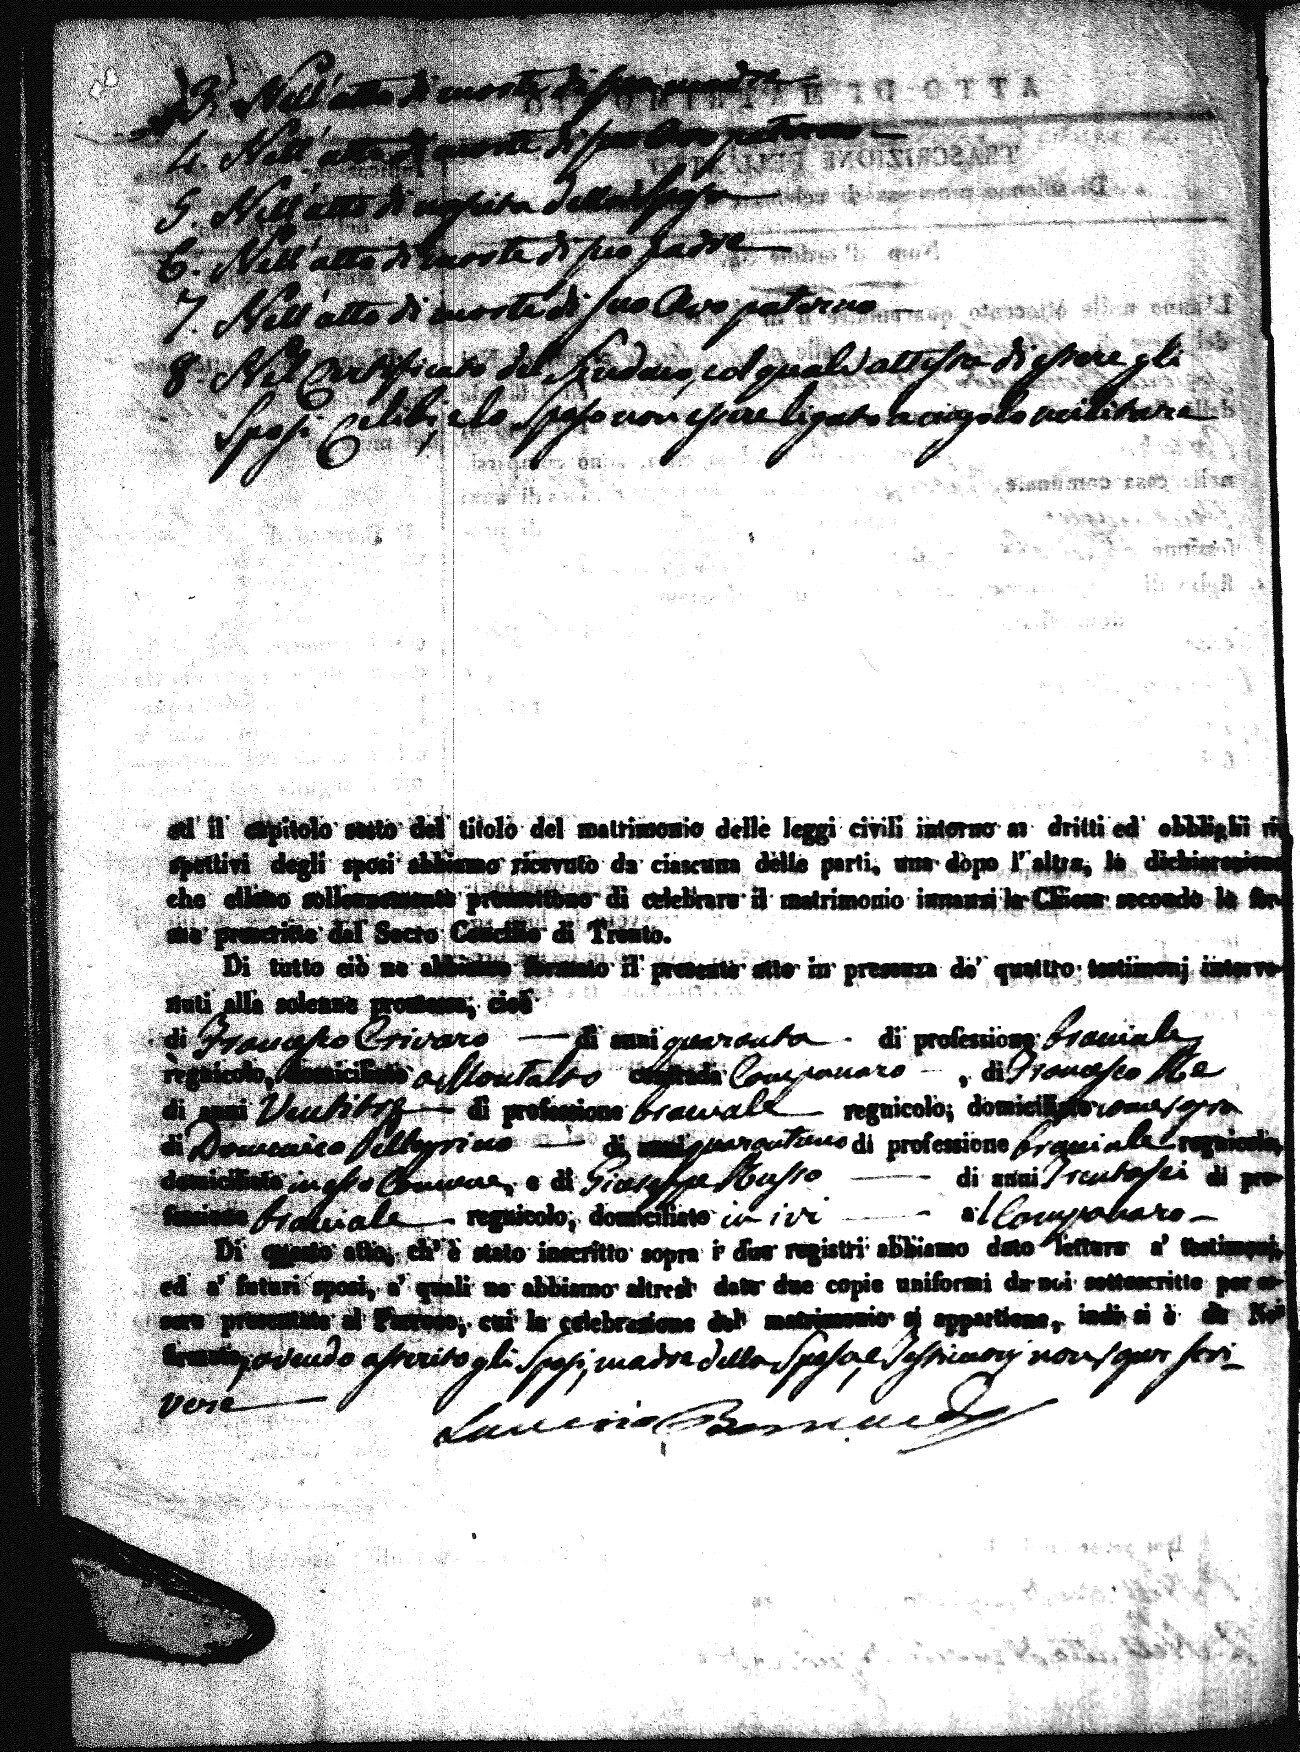 3. Nell'atto di morte di sua madre
4. Nell'atto di morte di suo Avo paterno
5. Nell'atto di nascita della Sposa
6. Nell'atto di morte di suo padre
7. Nell'atto di morte di suo Avo paterno
8. Nel Certificato del Sindaco, col quale attesta di essere gli
Sposi Celibi, e lo Sposo non essere ligato a vincolo militare
ati il capitolo sesto del titolo del matrimonio delle leggi civili intorno ai dritti ed obblighi ri-
spettivi degli sposi abbiamo ricevuto da ciascuna delle parti, una dopo l'altra, la dichiarazione
che elleno sollennemente promettono di celebrare il matrimonio innanzi la Chiesa secondo le for-
me prescritte dal Sacro Concilio di Trento.
Di tutto ciò ne abbiamo formato il presente atto in presenza de' quattro testimonj interve-
nuti alla solenne promessa, cioè
di Francesco Crivaro di anni quaranta di professione bracciale
regnicolo, domiciliato a Montalto contrada Companaro, di Francesco
di anni Ventitre di professione bracciale regnicolo; domiciliato come sopra
di Domenico Pellegrino di anni quarantuno di professione bracciale regnicolo,
domiciliato in esso Comune, e di Giuseppe Russo di anni Trentasei di pro-
fessione bracciale regnicolo, domiciliato in ivi al Companaro
Di questo atto, ch'è stato inscritto sopra i due registri abbiamo dato lettura a' testimonj,
ed a' futuri sposi, a' quali ne abbiamo altresì date due copie uniformi da noi sottoscritte per es-
sere presentate al Parroco, cui la celebrazione del matrimonio si appartiene, indi si è da Noi
firmato, avendo asserito gli Sposi, madre della Sposa, e Testimonj non saper scri-
vere